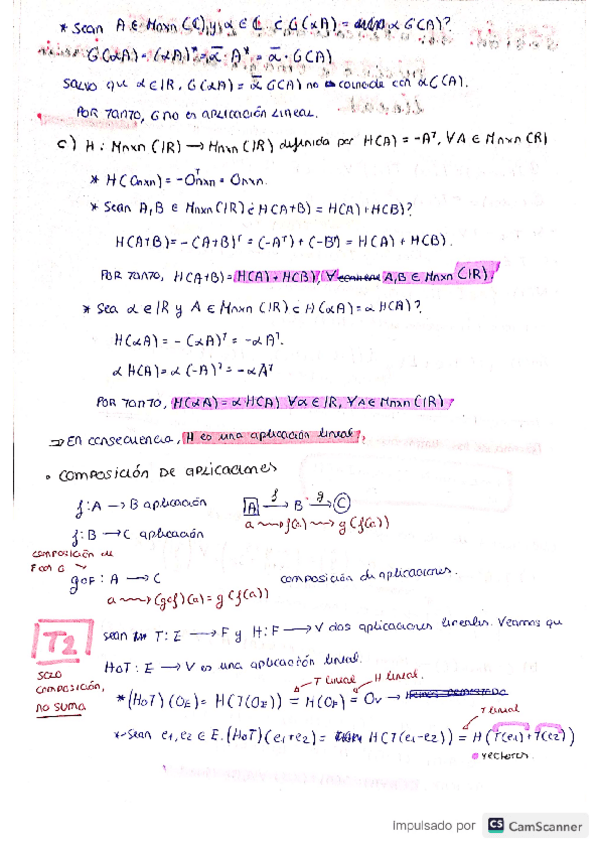 * Sean A ∈ Mnxn (ℂ) y α ∈ ℂ ¿ G(αA) = α G(A)?
G(αA) = (αA)* = ᾱ · A* = ᾱ · G(A)
SALVO que α ∈ IR, G(αA) = ᾱ G(A) no coincide con α G(A).
POR TANTO, G no es APLICACIÓN LINEAL.
c) H : Mnxn (IR) → Mnxn (IR) definida por H(A) = -Aᵀ, ∀A ∈ Mnxn (R)
* H(Onxn) = -Oᵀnxn = Onxn.
* Sean A,B ∈ Mnxn (IR) ¿ H(A+B) = H(A) + H(B)?
H(A+B) = -(A+B)ᵀ = (-Aᵀ) + (-Bᵀ) = H(A) + H(B).
POR TANTO, H(A+B) = H(A) + H(B), ∀ A,B ∈ Mnxn (IR).
* Sea α ∈ IR y A ∈ Mnxn (IR) ¿ H(αA) = α H(A)?
H(αA) = -(αA)ᵀ = -αAᵀ.
α H(A) = α (-A)ᵀ = -αAᵀ
POR TANTO, H(αA) = α H(A) ∀α ∈ IR, ∀A ∈ Mnxn (IR)
⇒ En consecuencia, H es una aplicación lineal.
• COMPOSICIÓN DE APLICACIONES
f: A → B aplicación A f→ B g→ C
f: B → C aplicación a ⇝ f(a) ⇝ g(f(a))
composición de
F con G
gof : A → C composición de aplicaciones.
a ⇝ (gof)(a) = g(f(a))
T2
sean T: E → F y H: F → V dos aplicaciones lineales. Veamos que
HoT : E → V es una aplicación lineal.
SOLO
composición,
no suma
T lineal H lineal.
* (HoT)(OE) = H(T(OE)) = H(OF) = OV →
T lineal
* Sean e1,e2 ∈ E. (HoT)(e1+e2) = H(T(e1-e2)) = H(T(e1) + T(e2))
vectores.
Impulsado por CS CamScanner